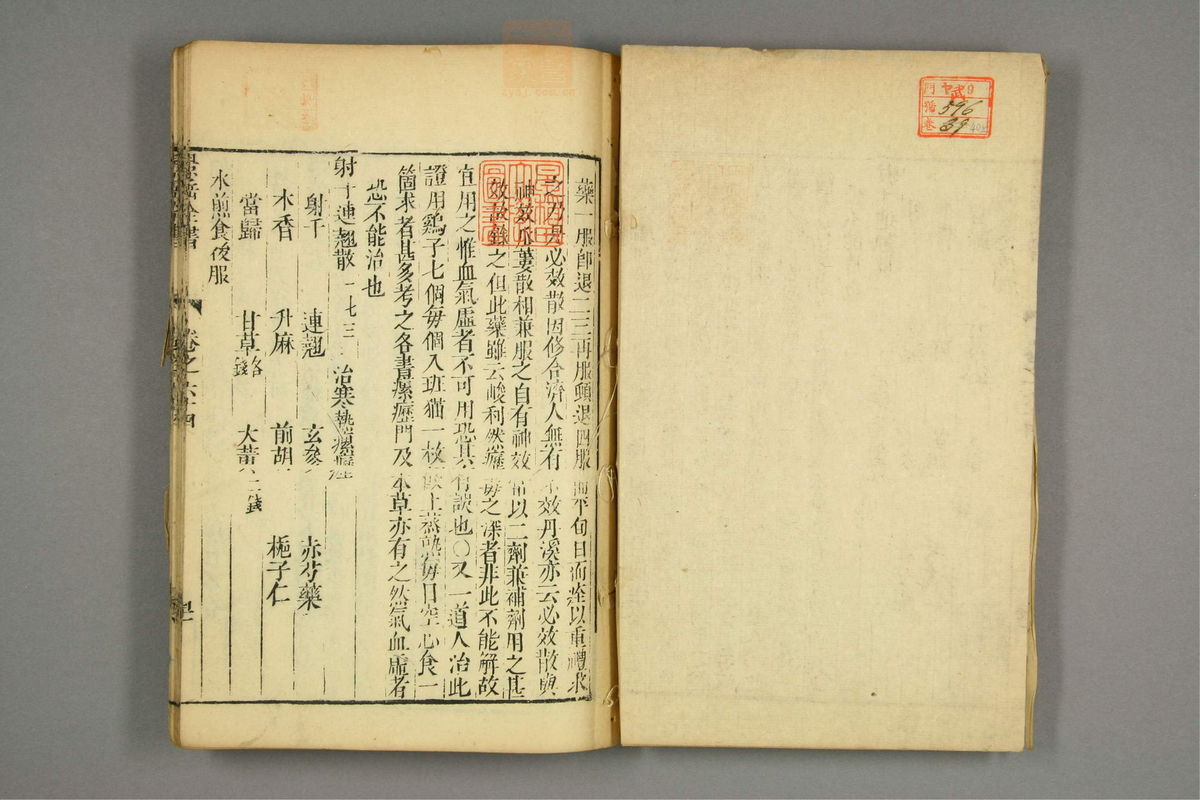 藥一服即退二三再服頓退四服 平旬日而痊以重禮求
之乃是必效散因修合濟人無有不效丹溪亦云必效散與
神效瓜蔞散相兼服之自有神效常以二劑兼補劑用之甚
效故錄之但此藥雖云峻利然癧毒之深者非此不能解故
宜用之惟血氣虛者不可用恐其有誤也〇又一道人治此
證用鷄子七個每個入班猫一枚飯上蒸熟每日空心食一
箇求者甚多考之各書瘰癧門及本草亦有之然氣血虛者
恐不能治也
射干連翹散 一七三 治寒熱瘰癧
射干 連翹 玄參 赤芍藥
木香 升麻 前胡 梔子仁
當歸 甘草 各 錢 大黃 二錢
水煎食後服
景岳全書 卷之六十四
門 ヤ 武 9
號 596
卷 39